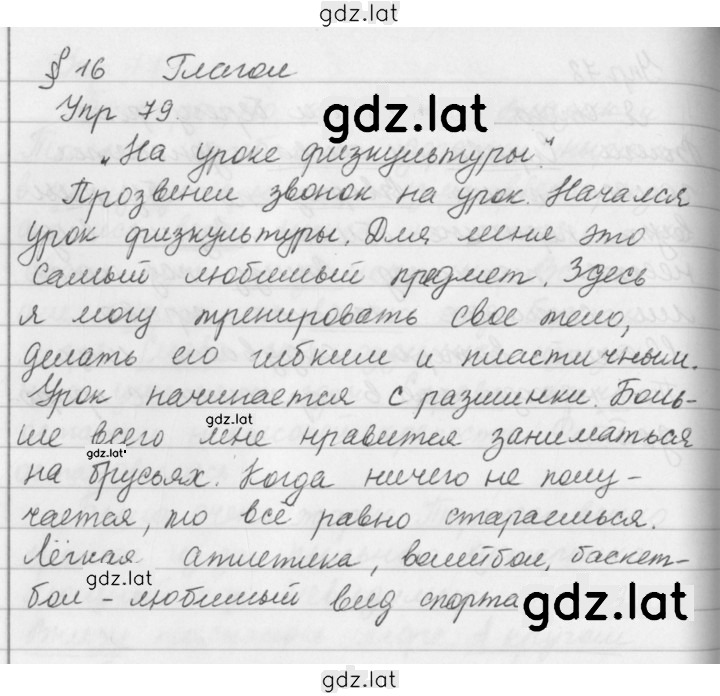 gdz.lat
§ 16 Глагол
Упр 79.
gdz.lat
„На уроке физкультуры."
Прозвенел звонок на урок. Начался
урок физкультуры. Для меня это
самый любимый предмет. Здесь
я могу тренировать свое тело,
делать его гибким и пластичным.
Урок начинается с разминки. Боль-
gdz.lat
ше всего мне нравится заниматься
на брусьях. Когда ничего не полу-
чается, то все равно стараешься.
Лёгкая атлетика, волейбол, баскет-
gdz.lat
бол - любимый вид спорта
gdz.lat
gdz.lat